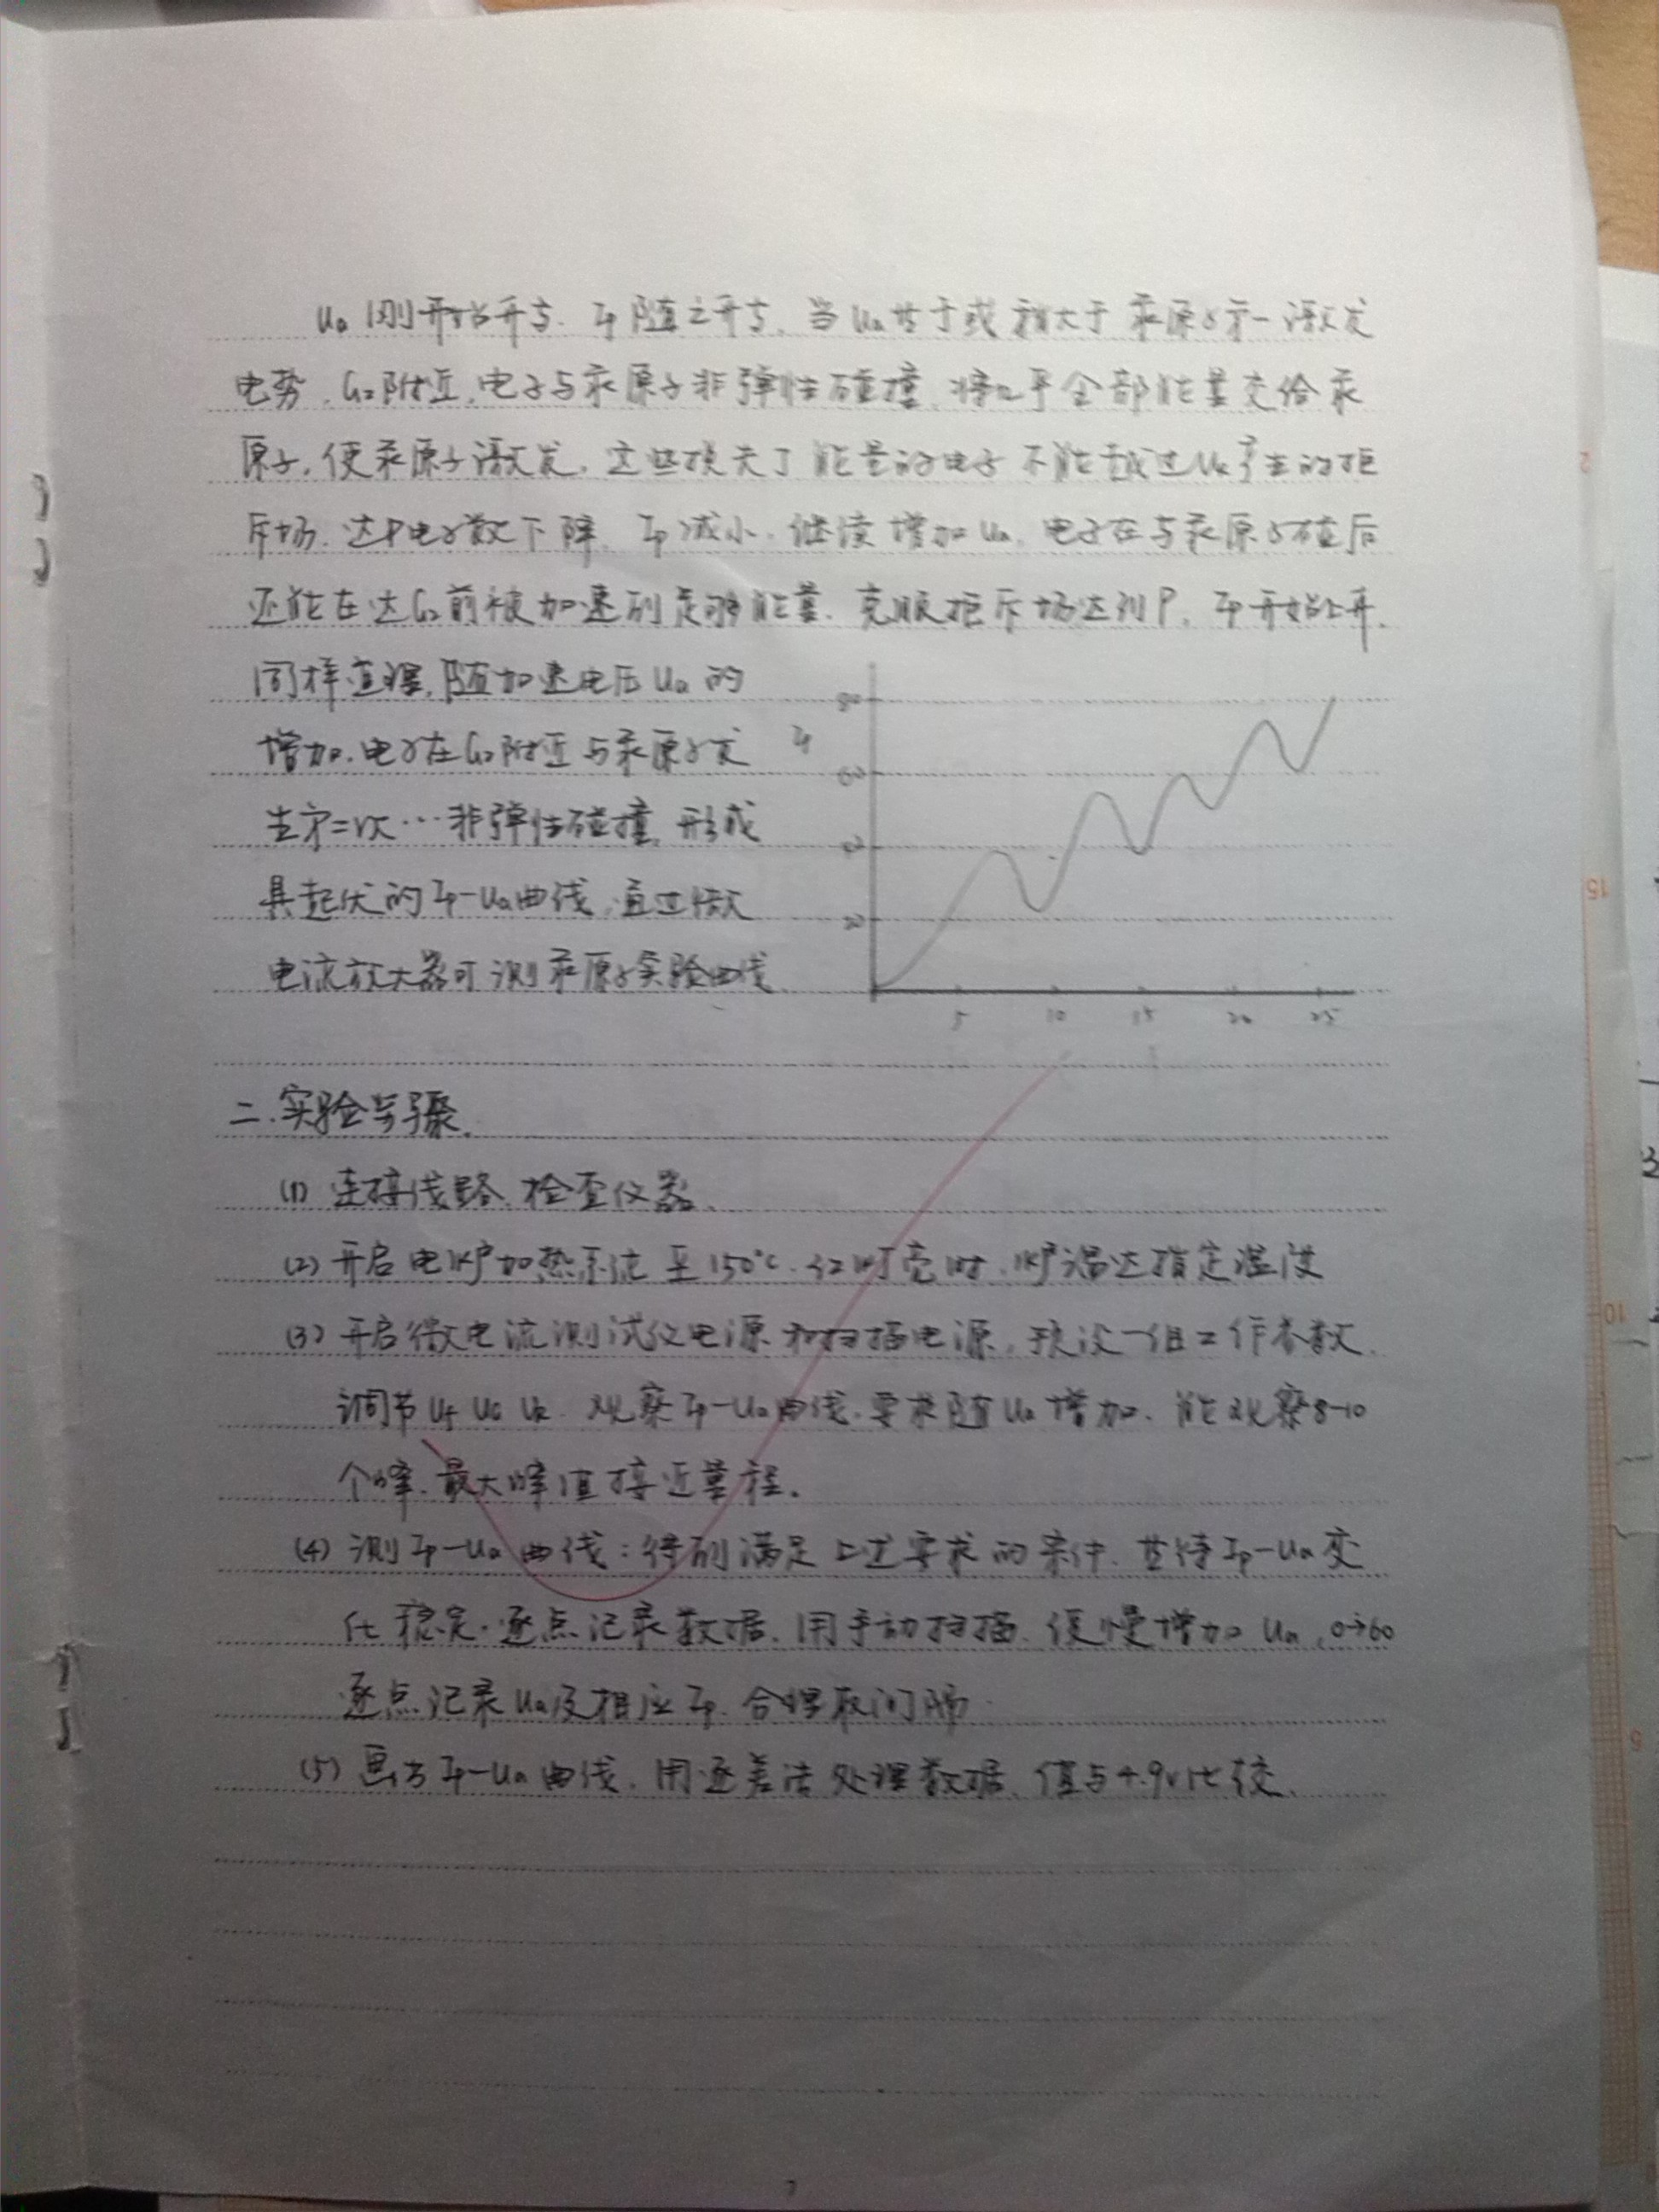 Ua刚开始升高，Ip随之升高，当Ua等于或稍大于汞原子第一激发
电势，G2附近，电子与汞原子非弹性碰撞，将几乎全部能量交给汞
原子，使汞原子激发，这些损失了能量的电子不能越过UR产生的拒
斥场，达P电子数下降，Ip减小，继续增加Ua，电子在与汞原子碰后
还能在达G2前被加速到足够能量，克服拒斥场达到P，Ip开始上升，
同样道理，随加速电压Ua的
增加，电子在G2附近与汞原子发
生第二次…非弹性碰撞，形成
具起伏的Ip-Ua曲线，通过微
电流放大器可测汞原子实验曲线
80
60
40
20
5 10 15 20 25
二.实验步骤.
(1) 连接线路、检查仪器.
(2) 开启电炉加热系统至150℃，红灯亮时，炉温达指定温度
(3) 开启微电流测试仪电源和扫描电源，预设一组工作参数，
调节Uf UG UR 观察Ip-Ua曲线，要求随Ua增加，能观察8-10
个峰，最大峰值接近量程.
(4) 测Ip-Ua曲线：得到满足上述要求的条件，等待Ip-Ua变
化稳定，逐点记录数据，用手动扫描，缓慢增加Ua，0→60
逐点记录Ua及相应Ip，合理取间隔.
(5) 画出Ip-Ua曲线，用逐差法处理数据，值与4.9V比较.
7
15
10
5